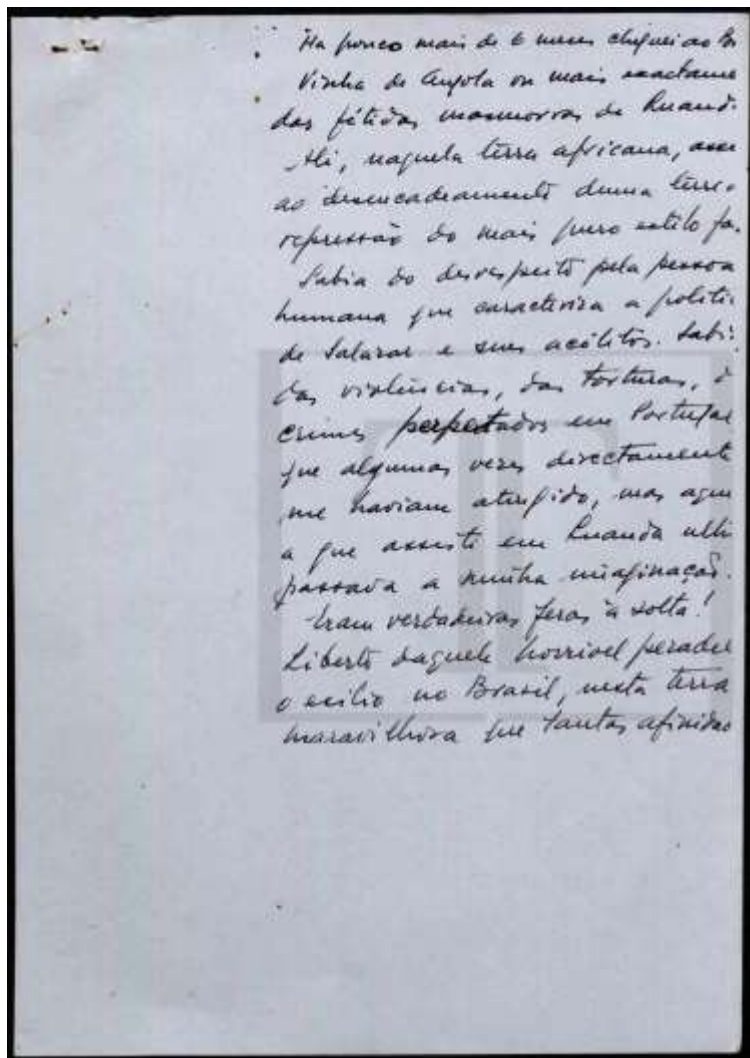 Ha pouco mais de 6 meses cheguei ao B
Vinha de Angola ou mais exactame
das fétidas masmorras de Luand.
Ali, naquela terra africana, asse
ao desencadeamento duma terr
repressão do mais puro estilo fa.
Sabia do desrespeito pela pessoa
humana que caracteriza a polit
de Salazar e seus acólitos. Sabi
das violências, das torturas, d
crimes perpetados em Portugal
que algumas vezes directamente
me haviam atingido, mas aqu
a que assisti em Luanda ult
passava a minha imaginação.
Eram verdadeiras feras à solta!
Liberto daquele horrivel pesadel
o exilio no Brasil, nesta terra
maravilhosa que tantas afinidad